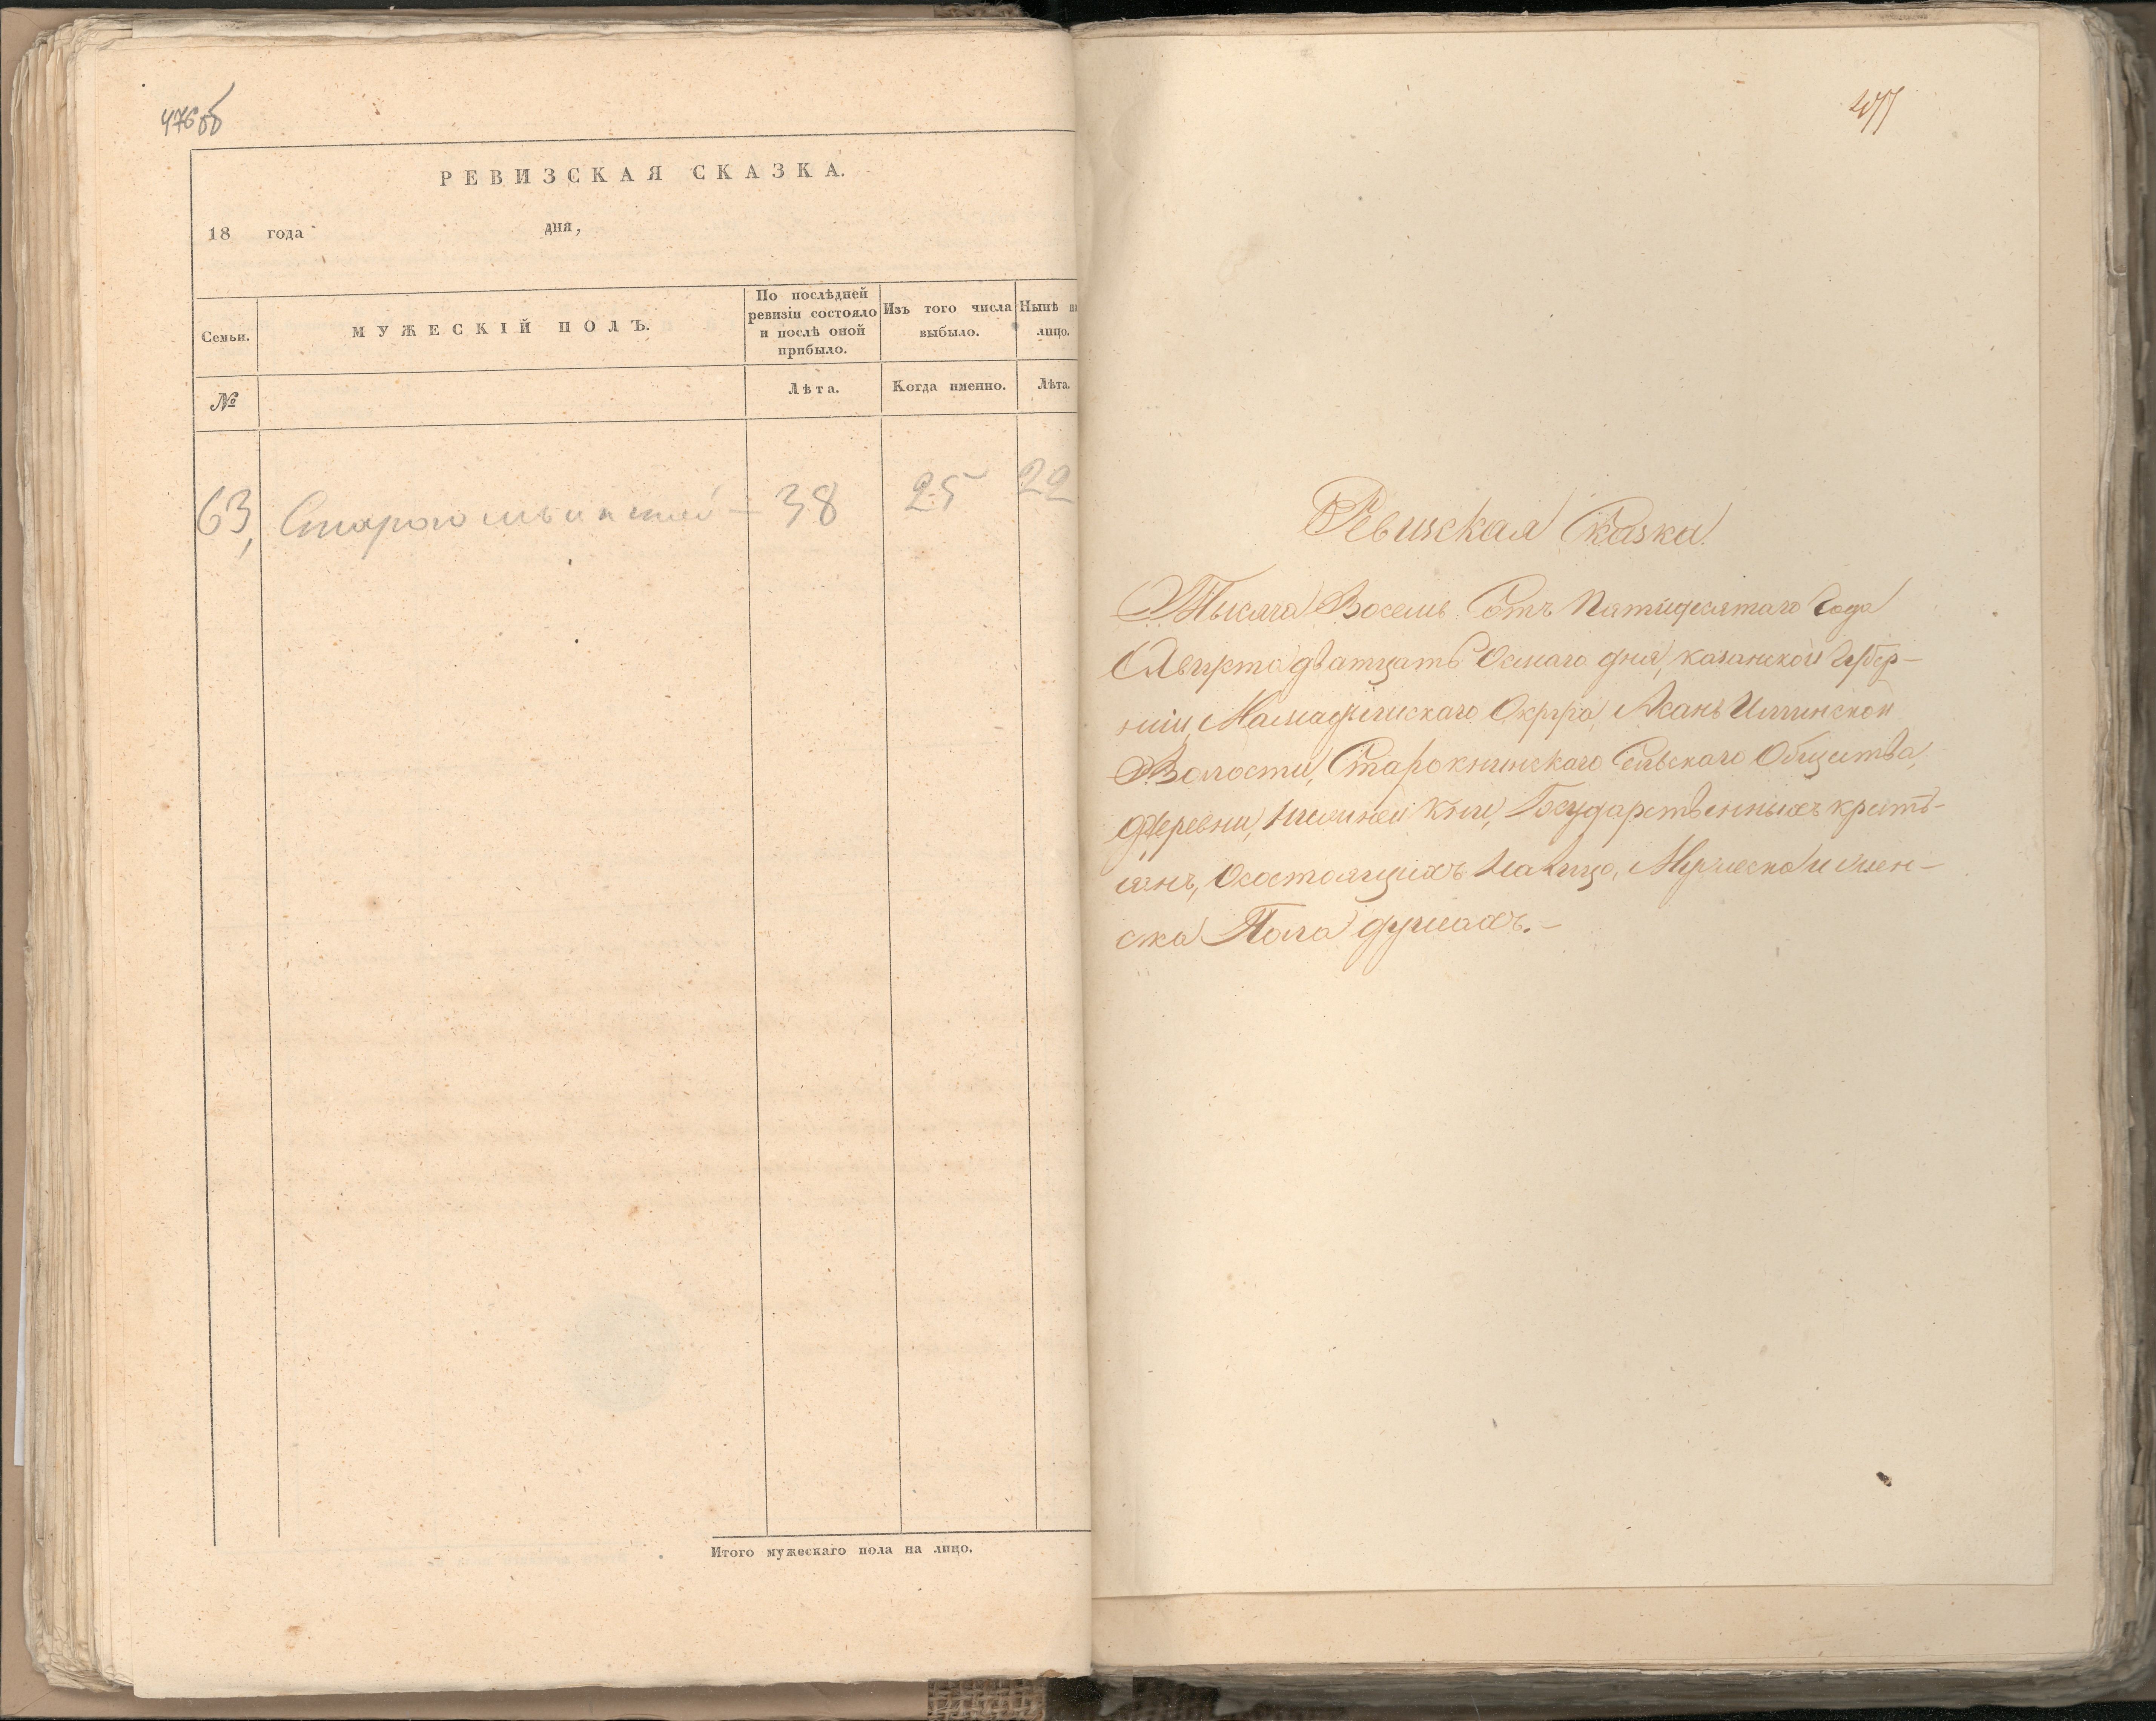 476об
РЕВИЗСКАЯ СКАЗКА.
18 года дня,
Семьи.
МУЖЕСКІЙ ПОЛЪ.
По послѣдней ревизіи состояло и послѣ оной прибыло.
Изъ того числа выбыло.
Нынѣ на лицо.
№
Лѣта.
Когда именно.
Лѣта.
63, 38 25 22
Итого мужескаго пола на лицо.
477
Ревиская Сказка.
Тысяча Восемь Сотъ Пятидесятаго Года
Августа дватцать Осмаго дня, казанской Губер-
ніи, Мамадышскаго Округа, Кишинской
Волости, Старокнинскаго Сельскаго Общества,
Деревни, Нижней Кни, Государственныхъ кресть-
янъ, О состоящихъ На лицо, Мужеска и жен-
ска Пола душахъ.-